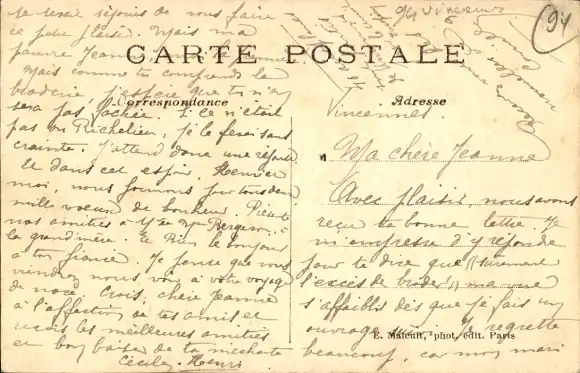 94
9/4 Vincennes
CARTE POSTALE
Correspondance
Adresse
Vincennes.
Ma chère Jeanne
Avec plaisir, nous avons
reçu ta bonne lettre. Je
m'empresse d'y répondre
pour te dire que
l'excès de broder, ma vue
s'affaiblis dès que je fais un
ouvrage. Je regrette
beaucoup, car mon mari
E. Malcuit, phot. édit. Paris
se serait réjouis de nous faire
ce petit plaisir. Mais ma
pauvre Jeanne,
Mais comme tu comprends la
broderie, j'espère que tu n'en
sera pas fâchée. Si ce n'était
pas du Richelieu, je le ferai sans
crainte. J'attend donc une réponse.
Et dans cet espoir, Henri et
moi, nous formons pour tous deux
mille voeux de bonheur. Présente
nos amitiés à Mr et Mme Bergeron, à
la grand'mère. Et Bien le bonjour
à ton fiancé. Je pense que vous
viendrez nous voir à votre voyage
de noce. Crois, chère Jeanne
à l'affection de tes amis et
reçois les meilleures amitiés
et bon baiser de ta méchante
Cécile. Henri